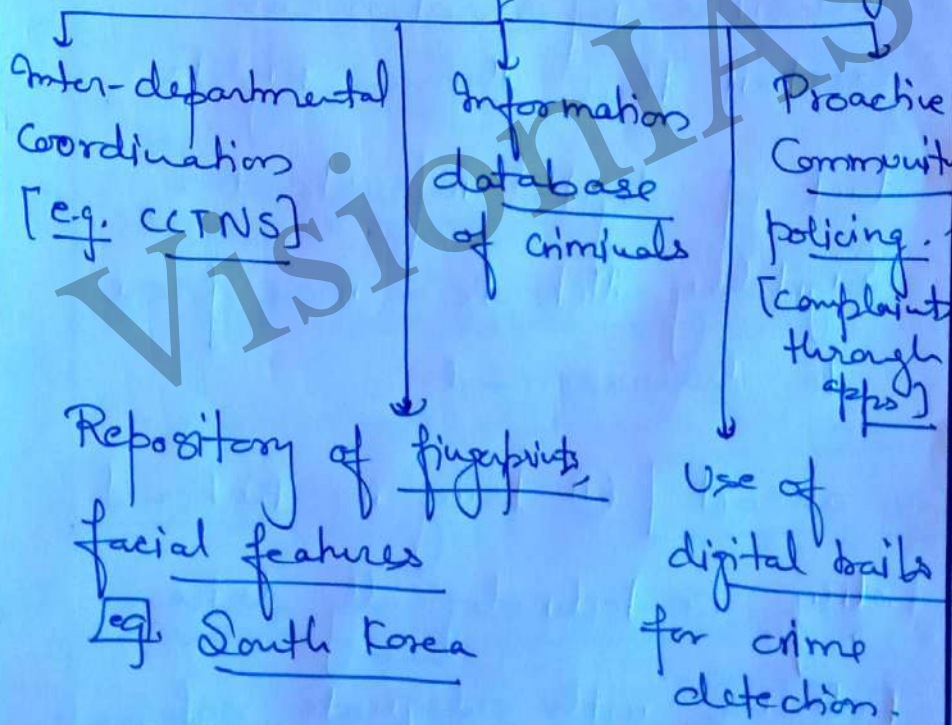 Inter-departmental
Coordination
[e.g. CCTNS]
Information
database
of criminals
Proactive
Community
policing.
[complaints
through
apps]
Repository of fingerprints,
facial features
eg. South Korea
Use of
digital trails
for crime
detection.
VisionIAS